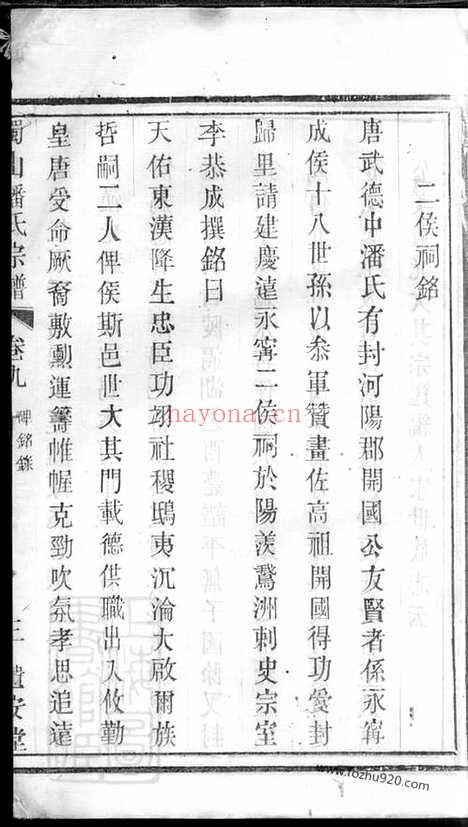 二侯祠銘
唐武德中潘氏有封河陽郡開國公友賢者係永寗
成侯十八世孫以叅軍贊畫佐高祖開國得功爰封
歸里請建慶遠永寗二侯祠於陽羡鵞洲刺史宗室
李恭成撰銘曰
天佑東漢降生忠臣功翊社稷鴟夷沉淪大啟爾族
哲嗣二人俾侯斯邑世大其門載德供職出入攸勤
皇唐受命厥裔敷勳運籌帷幄克勁吹氛孝思追遠
蜀山潘氏宗譜
卷九
碑銘錄
三
遺安堂
hayona.cn
www.fozhu920.com